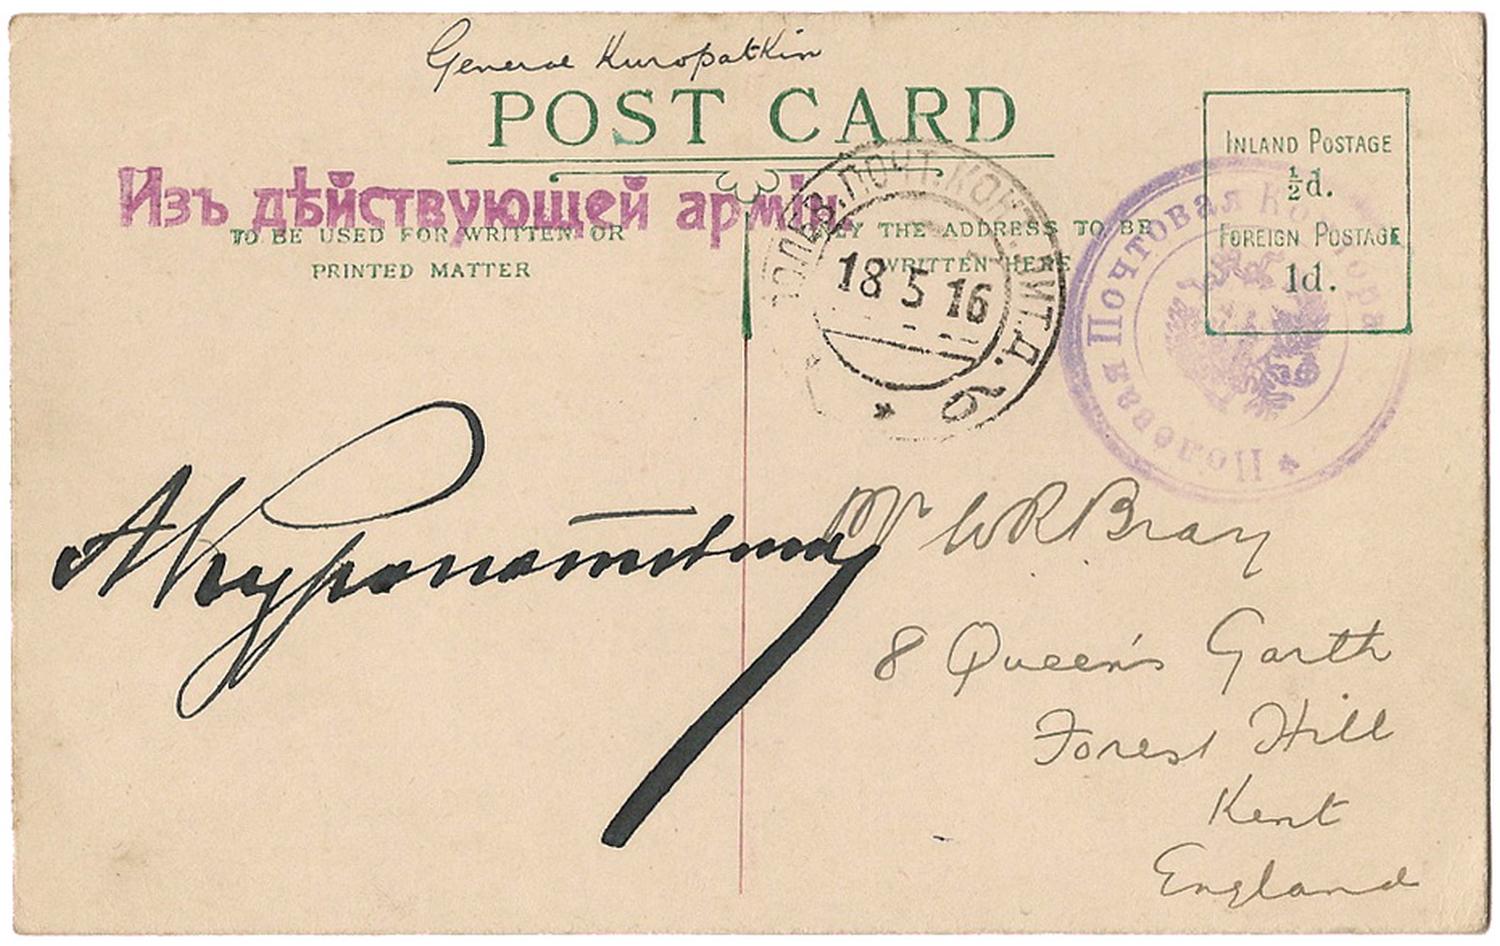 General Kuropatkin
POST CARD
Изъ дѣйствующей арміи.
TO BE USED FOR WRITTEN OR
PRINTED MATTER
ONLY THE ADDRESS TO BE
WRITTEN HERE
INLAND POSTAGE
½d.
FOREIGN POSTAGE
1d.
ПОЧТ. КОНТ.
18 5 16
Полевая Почтовая Контора
АКуропаткин
Mr W R Bray
8 Queen's Garth
Forest Hill
Kent
England